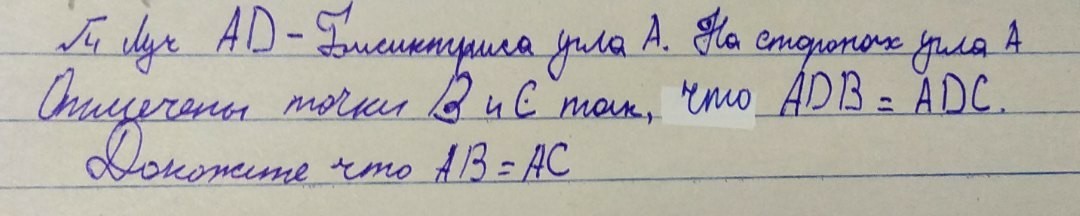 √4 Луч AD - Биссиктриса угла A. На сторонах угла A
Отмечены точки B и C так, что ADB = ADC.
Докажите что AB = AC